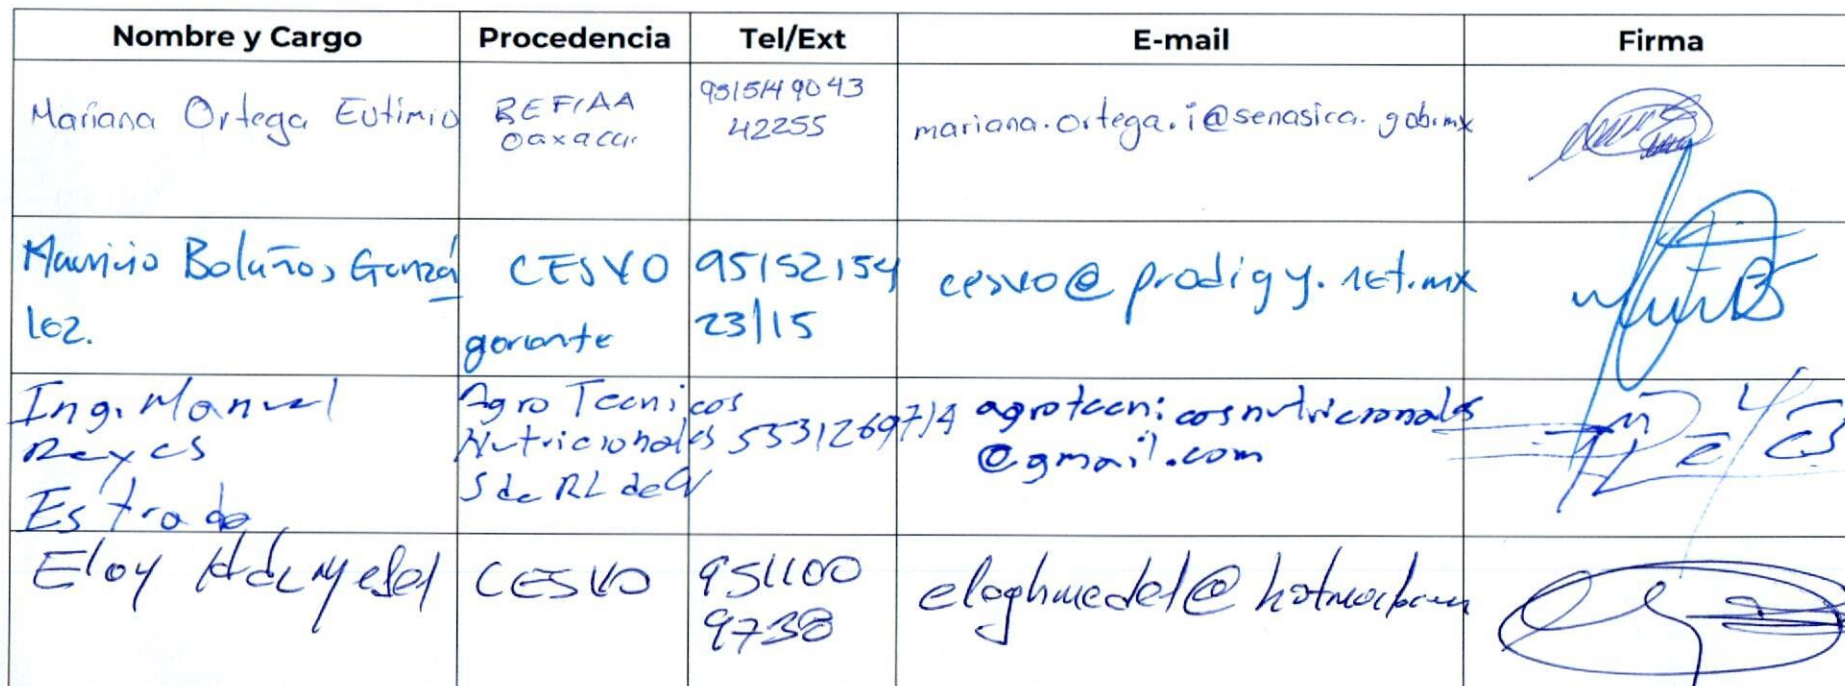 Nombre y Cargo Procedencia Tel/Ext E-mail Firma
Mariana Ortega Eutimio
REFIAA
Oaxaca
42255
mariana.ortega.i@senasica.gob.mx
Mauricio Bolaños Gonzá
lez.
CESVO
gerente
95152154
23/15
cesvo@prodigy.net.mx
Ing. Manuel
Reyes
Estrada
Agro Tecnicos
Nutricionales
S de RL de CV
5531269714
agrotecnicosnutricionales
@gmail.com
Eloy
CESVO
951100
9738